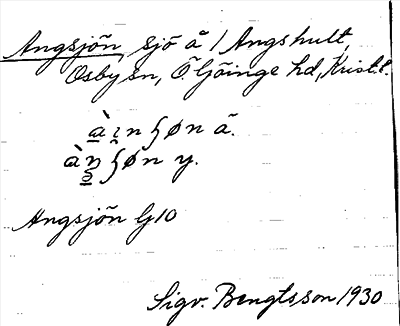 Angsjön, sjö å / Angshult,
Osby sn, Ö Göinge hd, Krist. l.
ŋʃøn y.
Angsjön G 10
Sigv. Bengtsson 1930